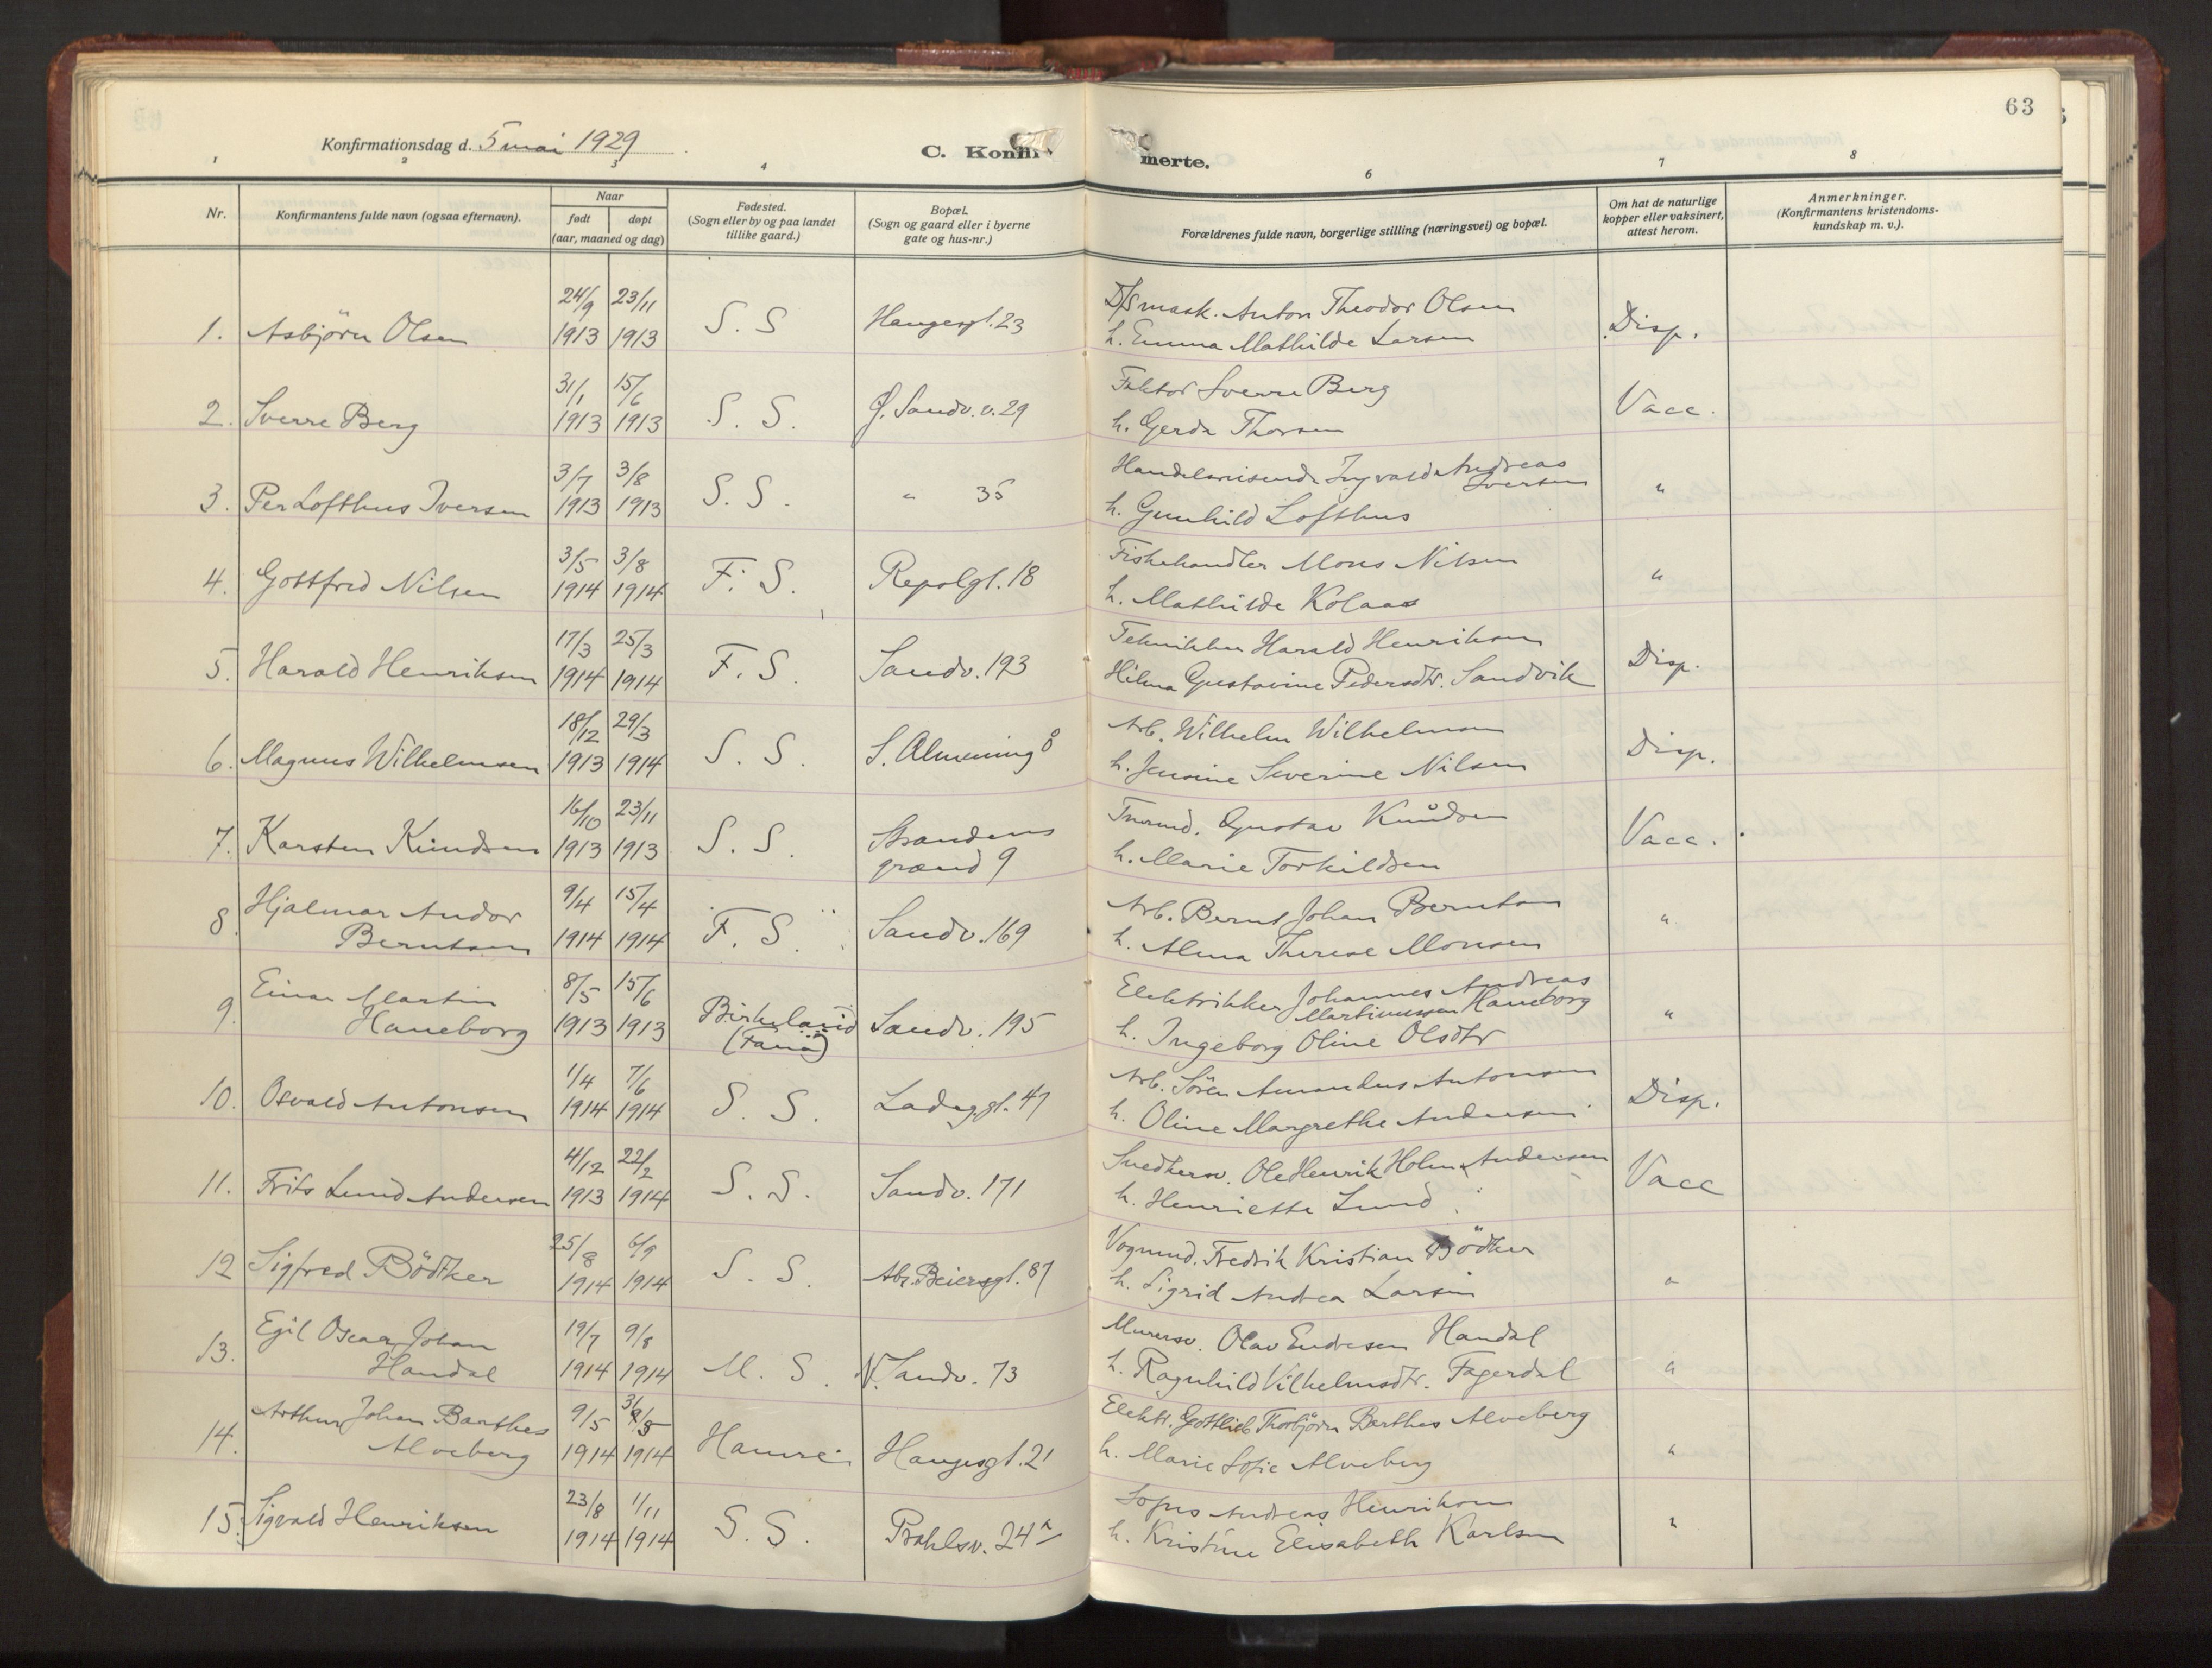 63
Konfirmationsdag d. 5 mai 1929
C. Konfir merte.
1 2 3 4 6 7 8
Nr.
Konfirmantens fulde navn (ogsaa efternavn).
Naar
født døpt
(aar, maaned og dag)
Fødested.
(Sogn eller by og paa landet
tillike gaard.)
Bopæl.
(Sogn og gaard eller i byerne
gate og hus-nr.)
Forældrenes fulde navn, borgerlige stilling (næringsvei) og bopæl.
Om hat de naturlige
kopper eller vaksinert,
attest herom.
Anmerkninger.
(Konfirmantens kristendoms-
kundskap m. v.).
24/9 23/11 D/S mask. Anton Theodor Olsen
1. Asbjörn Olsen 1913 1913 S. S Haugesgt. 23 h. Emma Mathilde Larsen Disp.
31/1 15/6 Faktor Sverre Berg
2. Sverre Berg 1913 1913 S. S. Ø. Sandv. v. 29 h. Gerda Thorsen Vacc.
3/7 3/8 Handelsreisende Ingvald Andreas
Iversen
3. Per Lofthus Iversen 1913 1913 S. S. " 35 h. Gunhild Lofthus "
3/5 3/8 Fiskehandler Mons Nilsen
4. Gottfred Nilsen 1914 1914 F. S. Repslgt. 18 h. Mathilde Kolaas "
17/3 25/3 Tekniker Harald Henriksen
5. Harald Henriksen 1914 1914 F. S. Sandv. 193 Hilma Gustavine Pedersdtr. Sandvik Disp.
18/12 29/3 Arb. Wilhelm Wilhelmsen
6. Magnus Wilhelmsen 1913 1914 S. S. S. Almenning 8 h. Jensine Severine Nilsen Disp.
16/10 23/11 Gustav Knudsen
7. Karsten Knudsen 1913 1913 S. S. Strandens
grænd 9 h. Marie Torkildsen Vacc.
Hjalmar Andor 9/4 15/4 Arb. Bernt Johan Berntsen
8. Berntsen 1914 1914 F. S. Sandv. 169 h. Alma Therese Monsen "
Einar Martin 8/5 15/6 Elektrikker Johannes Andreas
Martinussen Haneborg
9. Haneborg 1913 1913 Birkeland
(Fana) Sandv. 195 h. Ingeborg Oline Olsdtr "
1/4 7/6 Arb. Sören Amandus Antonsen
10. Osvald Antonsen 1914 1914 S. S. Ladeggt. 47 h. Oline Margrethe Andersen Disp.
4/12 22/2 Snedkersv. Ole Henrik Holm Andersen
11. Frits Lund Andersen 1913 1914 S. S. Sandv. 171 h. Henriette Lund Vacc
25/8 6/9 Vognmd. Fredrik Kristian Bödtker
12 Sigfred Bödtker 1914 1914 S. S. Abr. Beiersgt. 87 h. Sigrid Andrea Larsen "
Egil Oscar Johan 19/7 9/8 Murersv. Olav Endresen Handal
13. Handal 1914 1914 M. S. N. Sandv. 73 h. Ragnhild Vilhelmsdtr. Fagerdal "
Arthur Johan Barthes 9/5 31/5 Elektr. Gottlieb Thorbjörn Barthes Alveberg
14. Alveberg 1914 1914 Hamre Haugesgt. 21 h. Marie Sofie Alveberg "
23/8 1/11 Sofus Andreas Henriksen
15. Sigvald Henriksen 1914 1914 S. S. Prahlsv. 24 a h. Kristine Elisabeth Karlsen "